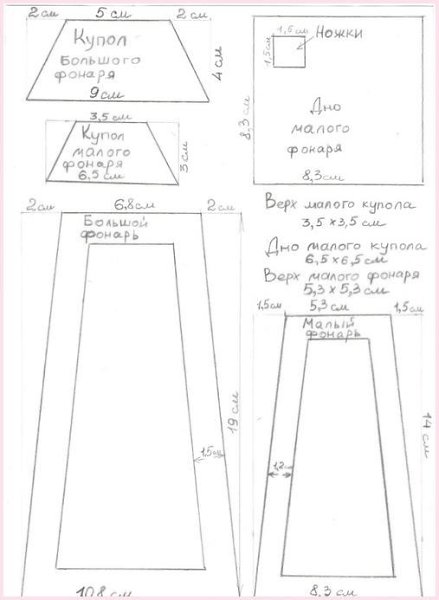 2 см 5 см 2 см
Купол
Большого
фонаря
9 см
4 см
3,5 см
Купол
малого
фонаря
6,5 см
3 см
1,5 см
1,5 см
Ножки
Дно
малого
фонаря
8,3 см
8,3 см
Верх малого купола
3,5 х 3,5 см
Дно малого купола
6,5 х 6,5 см
Верх малого фонаря
5,3 х 5,3 см
2 см 6,8 см 2 см
Большой
фонарь
19 см
1,5 см
10,8 см
1,5 см 5,3 см 1,5 см
Малый
фонарь
14 см
1,2 см
8,3 см